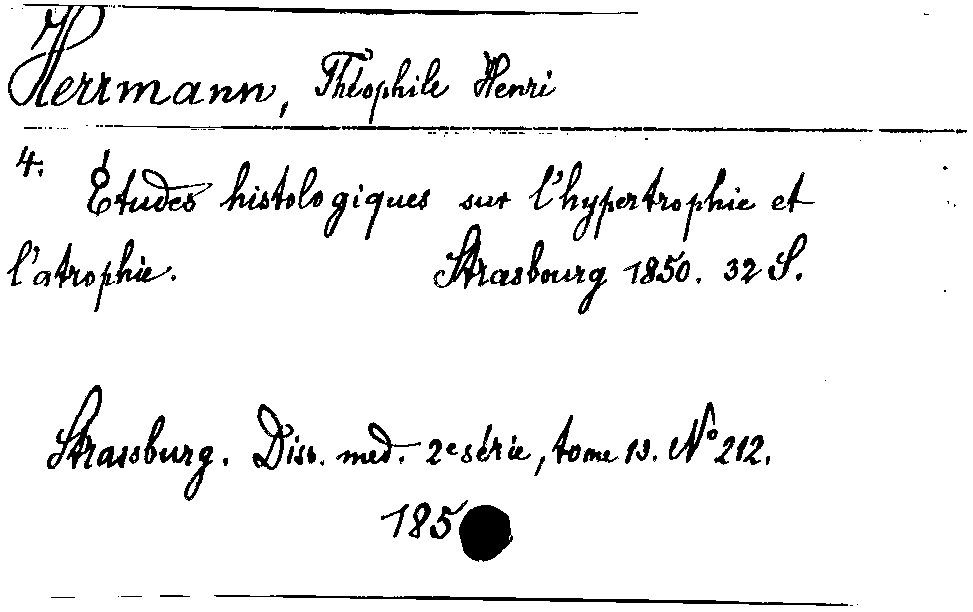 Herrmann, Théophile Henri
4. Études histologiques sur l'hypertrophie et
l'atrophie. Strasbourg 1850. 32 S.
Strassburg. Diss. med. 2e série, tome 13. No 212.
185